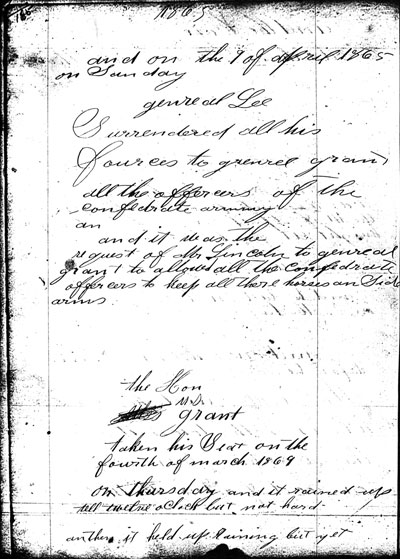 1865
and on the 9 of april 1865
on Sunday
genreal Lee
Surrendered all his
fources to grenrel grant
all the offercers of the
confedrate armmy
an
and it was the
request of Mr Lincoln to genreal
grant to allowed all the confedrate
offercers to keep all there horses an Side
arms
the Hon
U.S. grant
taken his Seat on the
fourth of march 1869
on thursday and it rained up
till twelve oClock but not hard
an then it held up raining but yet